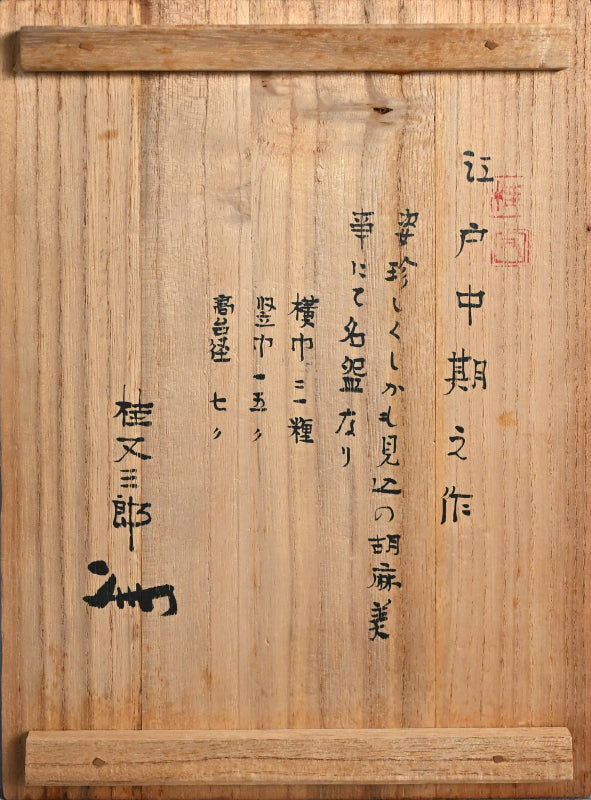 江戸中期之作
姿珍しくしかも見込の胡麻美
事にて名盌なり
横巾 二一糎
竪巾 一五〃
高台径 七〃
桂又三郎